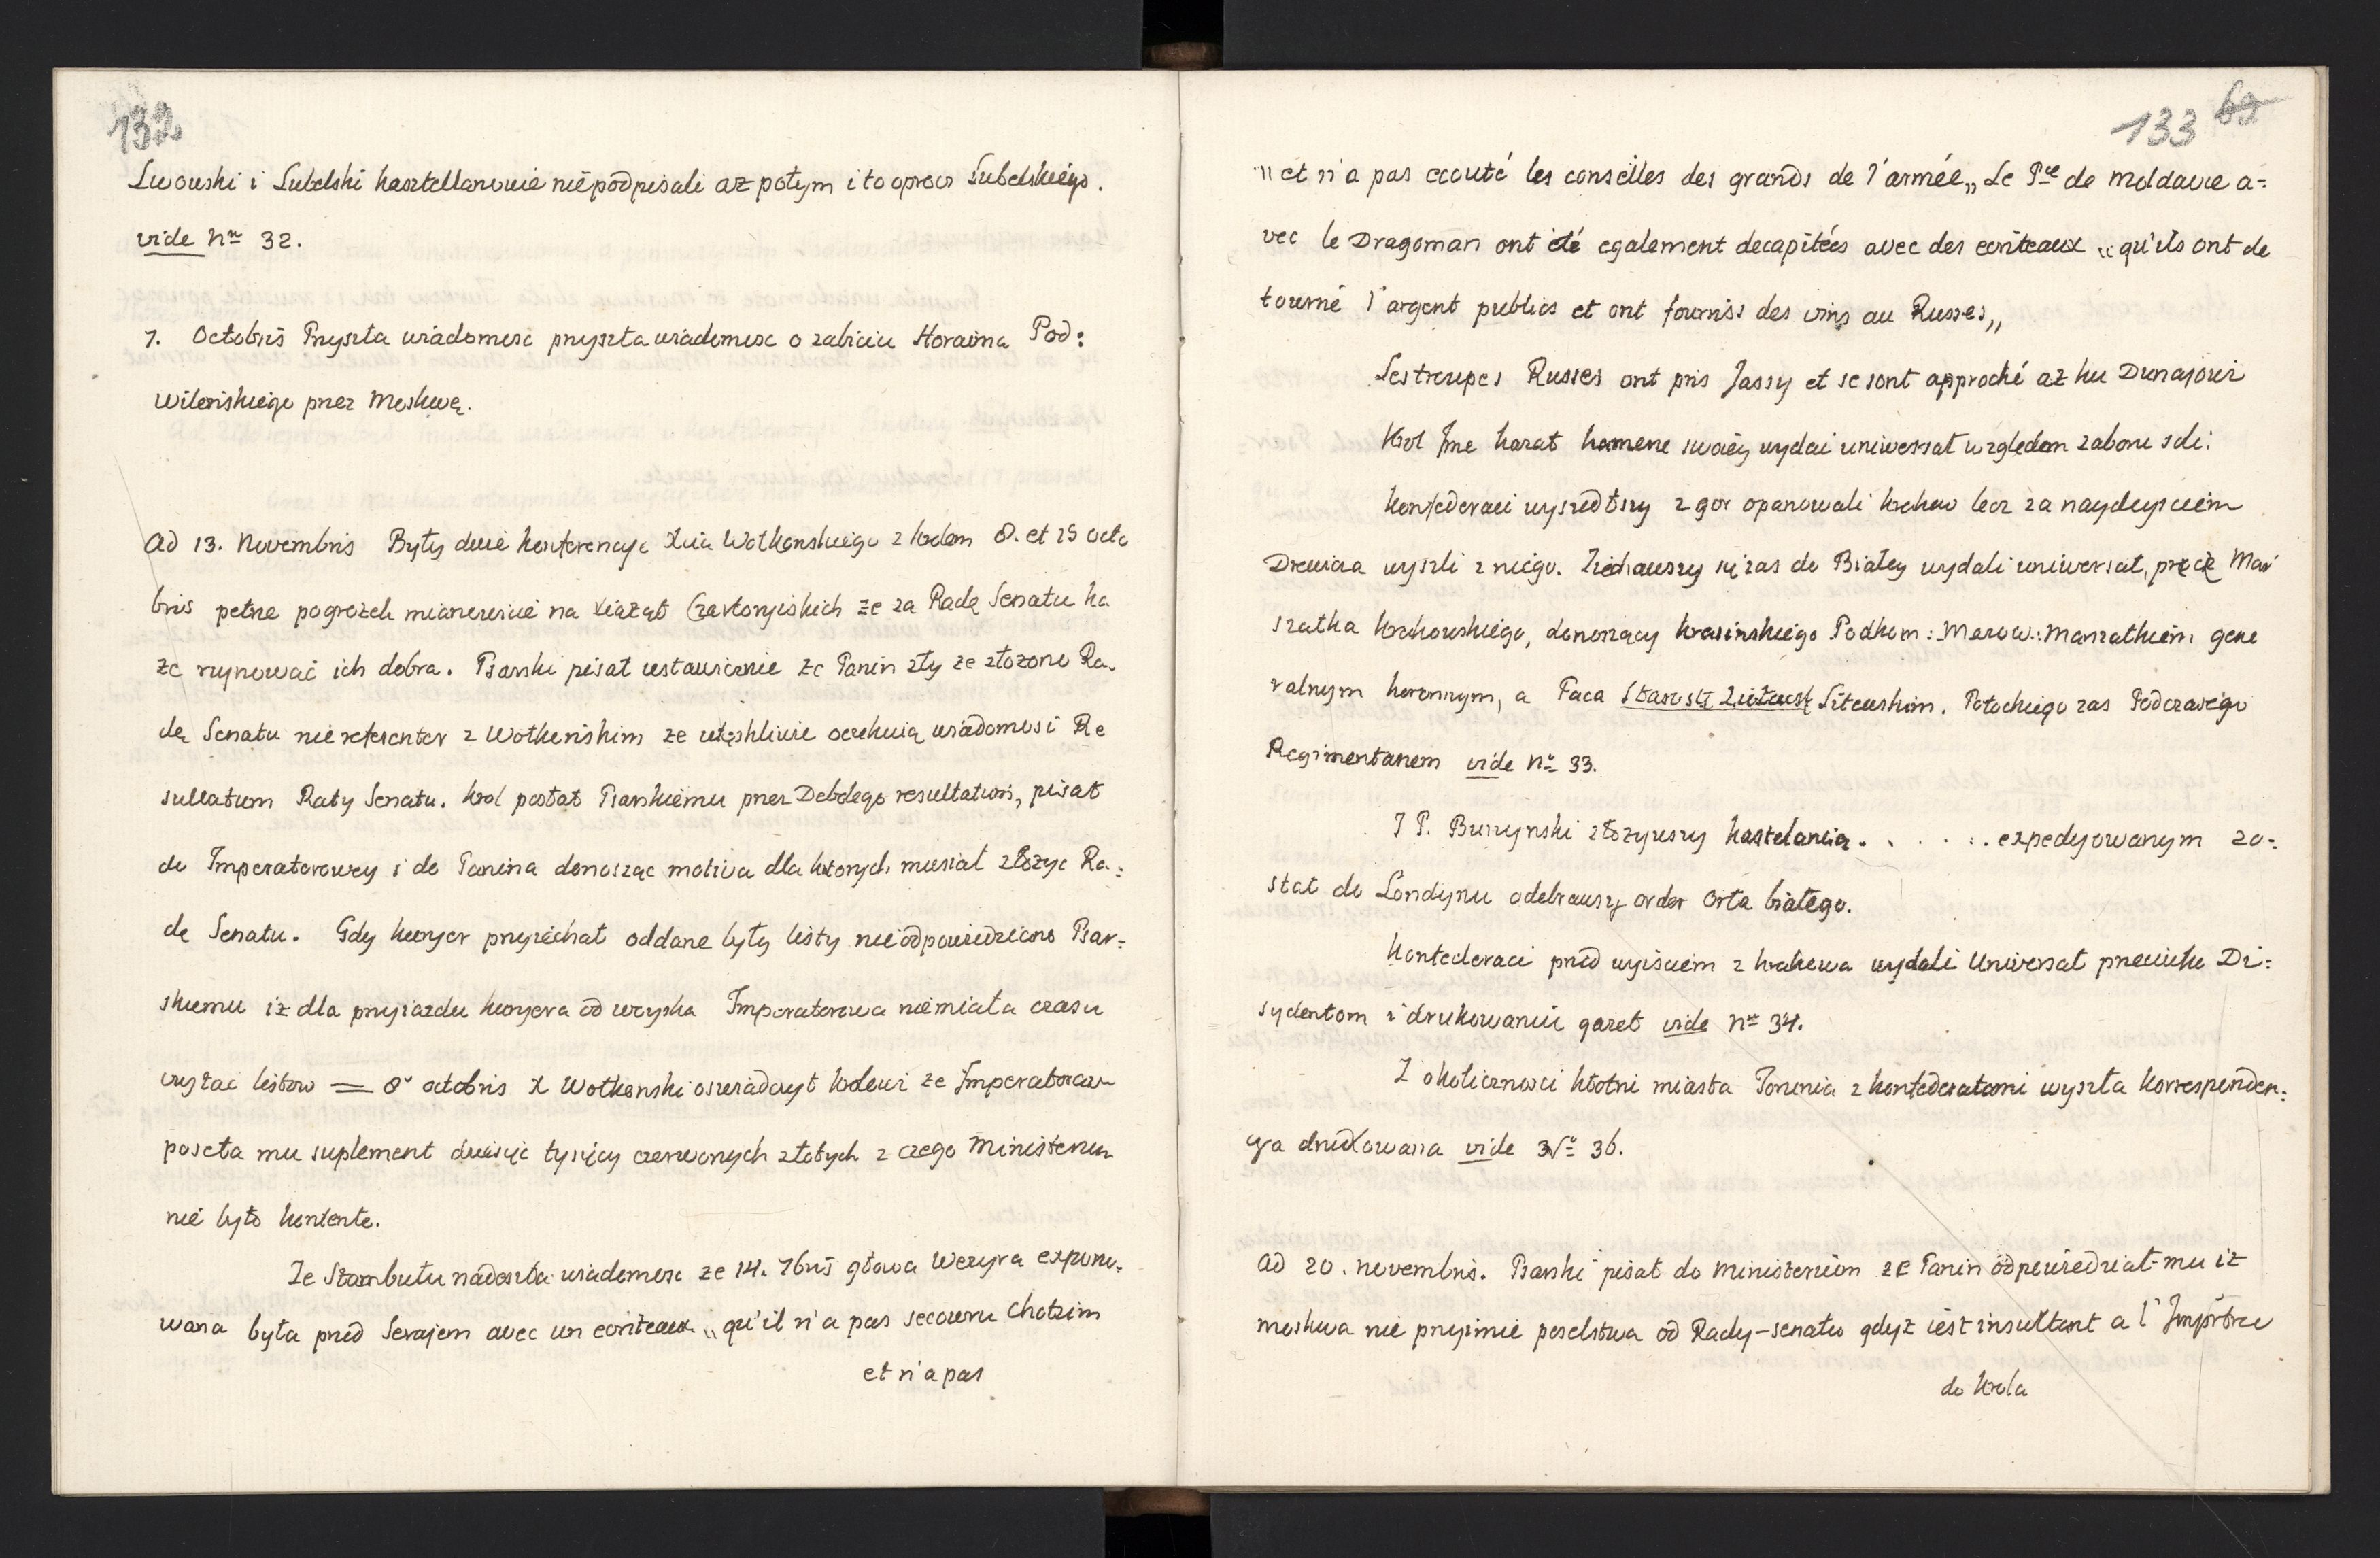 132
Lwowski i Lubelski kasztellanowie nie podpisali aż potym i to oprocz Lubelskiego.
vide Nro 32.
7. Octobris Przyszła wiadomosc przyszła wiadomosc o zabiciu Horaima Pod:
Wilenskiego przez Moskwę.
Ad 13. Novembris Były dwie konferencye Xcia Wołkonskiego z krolem 8. et 15 octo
bris pełne pogrozek mianowicie na xiażąt Czartoryiskich ze za Radę Senatu ka
że rujnować ich dobra. Psarski pisał ustawicznie że Panin zły ze złożono Ra-
dę Senatu nie referenter z Wołkonskim ze utęskliwie oczekuią wiadomosi Re
sultatum Rady Senatu. Krol posłał Psarskiemu przez Debolego resultatum, pisał
do Imperatorowey i do Panina donosząc motiva dla ktorych musiał złożyc Ra:
dę Senatu. Gdy kuryer przyiechał oddane były listy nie odpowiedziano Psar=
skiemu iż dla przyiazdu kuryera od woyska Imperatorowa nie miała czasu
czytać listow = 8va octobris X Wołkonski oswiadczył krolewi że Imperatorow
poseła mu suplement dziesięc tysięcy czerwonych złotych z czego Ministerium
nie było kontente.
Ze Stambułu nadeszła wiadomosc ze 14. 7bris głowa Wezyra expono-
wana była przed Serajem avec un ecriteaux „qu'il n'a pas secouru Chotzim
et n'a pas
133 69
„et n'a pas ecouté les conseilles des grands de l'armée„ Le Pce de Moldavie a=
vec le Dragoman ont été egalement decapitées avec des ecriteaux „qu'ils ont de
tourné l'argent publics et ont fourniss des vins au Russes„
Les troupes Russes ont pris Jassy et se sont approché aż ku Dunajowi
Krol Jmc kazał komerze swoiey wydai uniwersał względem zaboru soli:
Konfederaci wyszedłszy z gor opanowali krakow lecz za nadeysciem
Drewicza wyszli z niego. Ziechawszy się zas do Białey wydali uniwersał, przez Mar
szałka krakowskiego, donoszący krasinskiego Podkom: Mazow: Marszałkiem gene
ralnym koronnym, a Paca Starostę Litewskim. Potockiego zas Podczaszego
Regimentarzem vide Nro 33.
J P. Burzynski złożywszy kastelanią . . . . . . expedyowanym zo=
stał do Londynu odebrawszy order Orła białego.
Konfederaci przed wyisciem z krakowa wydali Uniwersał przeciwko Di=
sydentom i drukowaniu gazet vide Nro 34.
Z okolicznosci kłotni miasta Torunia z konfederatami wyszła korrespenden=
cya drukowana vide Nro 36.
Ad 20. novembris. Psarski pisał do Ministerium że Panin odpowiedział mu iż
moskwa nie przyimie poselstwa od Rady-senatu gdyż iest insultant a l'Impértrce
do krola